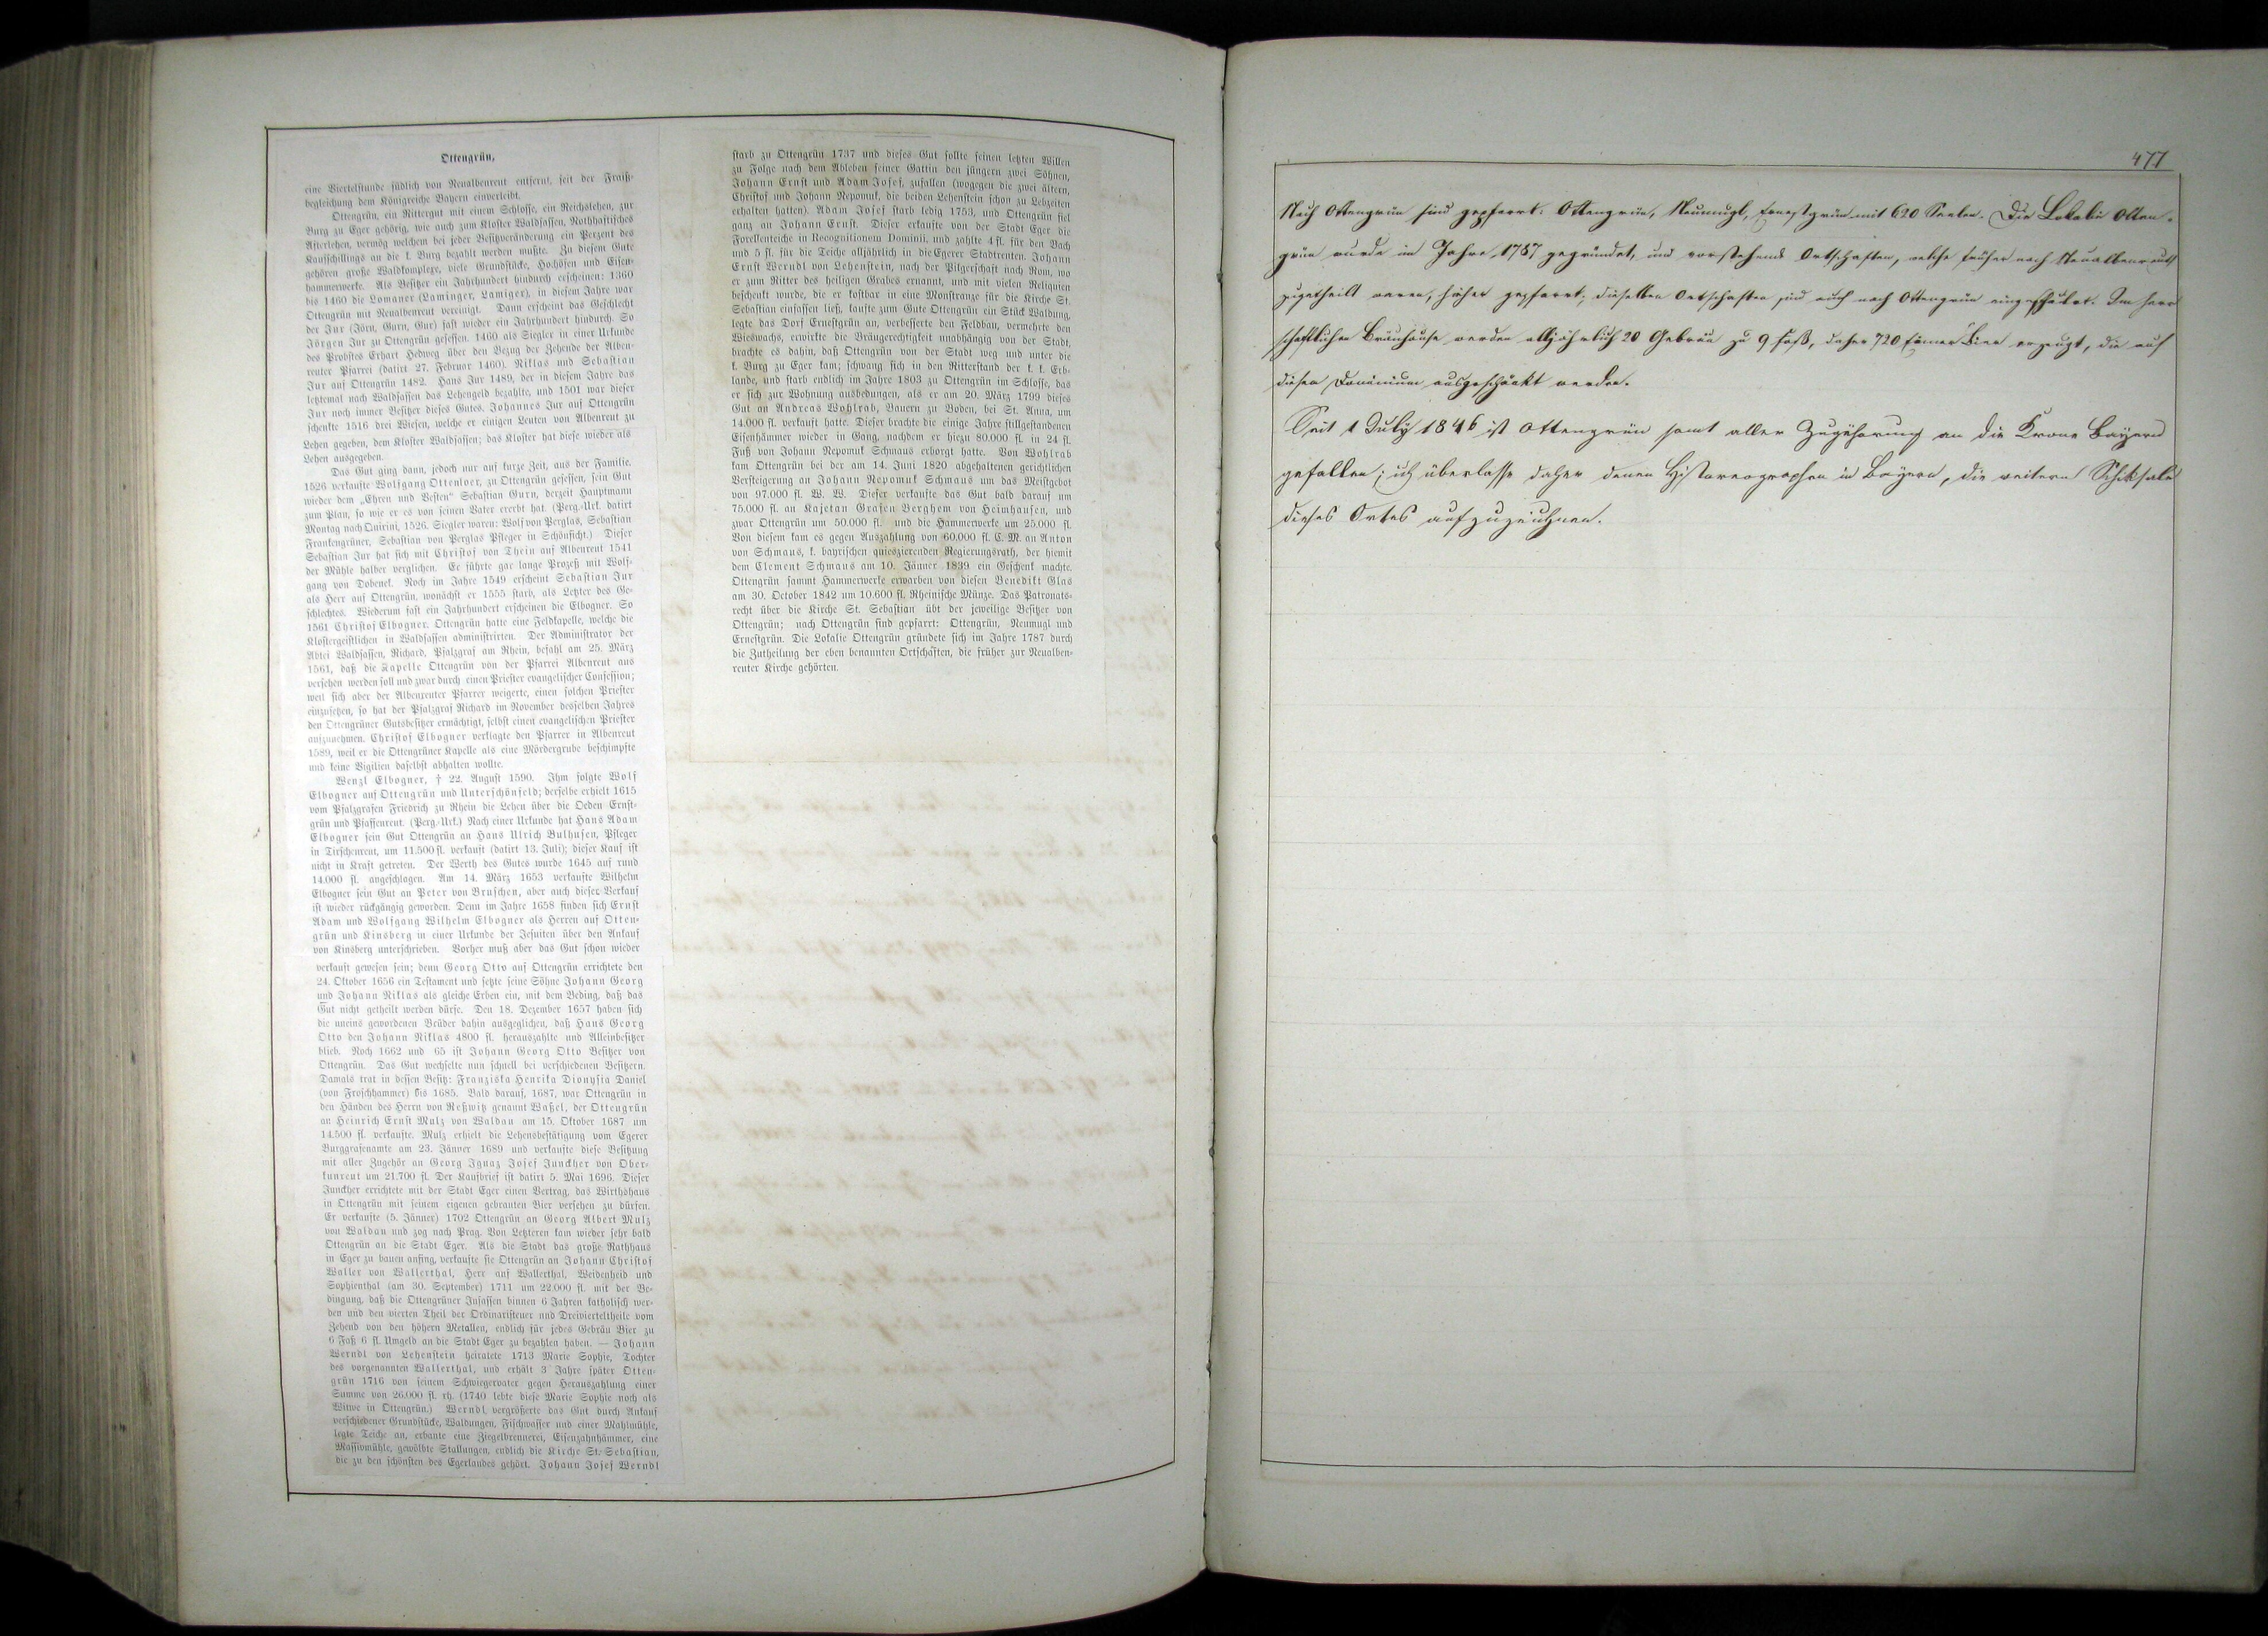 Ottengrün,
eine Viertelstunde südlich von Neualbenreut entfernt, seit der Fraiß-
begleichung dem Königreiche Bayern einverleibt.
Ottengrün, ein Rittergut mit einem Schlosse, ein Reichslehen, zur
Burg zu Eger gehörig, wie auch zum Kloster Waldsassen, Nothhaftisches
Afterlehen, vermög welchem bei jeder Besitzveränderung ein Perzent des
Kaufschillings an die k. Burg bezahlt werden mußte. Zu diesem Gute
gehören große Waldkomplexe, viele Grundstücke, Hochöfen und Eisen-
hammerwerke. Als Besitzer ein Jahrhundert hindurch erscheinen: 1360
bis 1460 die Lomaner (Laminger, Lamiger), in diesem Jahre war
Ottengrün mit Neualbenreut vereinigt. Dann erscheint das Geschlecht
der Jur (Jörn, Gurn, Gur) fast wieder ein Jahrhundert hindurch. So
Jörgen Jur zu Ottengrün gesessen. 1460 als Siegler in einer Urkunde
des Probstes Erhart Hedweg über den Bezug der Zehende der Alben-
reuter Pfarrei (datirt 27. Februar 1460). Niklas und Sebastian
Jur auf Ottengrün 1482. Hans Jur 1489, der in diesem Jahre das
letztemal nach Waldsassen das Lehengeld bezahlte, und 1501 war dieser
Jur noch immer Besitzer dieses Gutes. Johannes Jur auf Ottengrün
schenkte 1516 drei Wiesen, welche er einigen Leuten von Albenreut zu
Lehen gegeben, dem Kloster Waldsassen; das Kloster hat diese wieder als
Lehen ausgegeben.
Das Gut ging dann, jedoch nur auf kurze Zeit, aus der Familie.
1526 verkaufte Wolfgang Ottenloer, zu Ottengrün gesessen, sein Gut
wieder dem „Ehren und Vesten" Sebastian Gurn, derzeit Hauptmann
zum Plan, so wie er es von seinen Vater ererbt hat. (Perg.-Urk. datirt
Montag nach Quirini, 1526. Siegler waren: Wolf von Perglas, Sebastian
Frankengrüner, Sebastian von Perglas Pfleger in Schönficht.) Dieser
Sebastian Jur hat sich mit Christof von Thein auf Albenreut 1541
der Mühle halber verglichen. Er führte gar lange Prozeß mit Wolf-
gang von Dobeneck. Noch im Jahre 1549 erscheint Sebastian Jur
als Herr auf Ottengrün, wonächst er 1555 starb, als Letzter des Ge-
schlechtes. Wiederum fast ein Jahrhundert erscheinen die Elbogner. So
1561 Christof Elbogner. Ottengrün hatte eine Feldkapelle, welche die
Klostergeistlichen in Waldsassen administrirten. Der Administrator der
Abtei Waldsassen, Richard, Pfalzgraf am Rhein, befahl am 25. März
1561, daß die Kapelle Ottengrün von der Pfarrei Albenreut aus
versehen werden soll und zwar durch einen Priester evangelischer Confession;
weil sich aber der Albenreuter Pfarrer weigerte, einen solchen Priester
einzusetzen, so hat der Pfalzgraf Richard im November desselben Jahres
den Ottengrüner Gutsbesitzer ermächtigt, selbst einen evangelischen Priester
aufzunehmen. Christof Elbogner verklagte den Pfarrer in Albenreut
1589, weil er die Ottengrüner Kapelle als eine Mördergrube beschimpfte
und keine Vigilien daselbst abhalten wollte.
Wenzl Elbogner, † 22. August 1590. Ihm folgte Wolf
Elbogner auf Ottengrün und Unterschönfeld; derselbe erhielt 1615
vom Pfalzgrafen Friedrich zu Rhein die Lehen über die Oeden Ernst-
grün und Pfaffenreut. (Perg.-Urk.) Nach einer Urkunde hat Hans Adam
Elbogner sein Gut Ottengrün an Hans Ulrich Bulhusen, Pfleger
in Tirschenreut, um 11.500 fl. verkauft (datirt 13. Juli); dieser Kauf ist
nicht in Kraft getreten. Der Werth des Gutes wurde 1645 auf rund
14.000 fl. angeschlagen. Am 14. März 1653 verkaufte Wilhelm
Elbogner sein Gut an Peter von Bruschen, aber auch dieser Verkauf
ist wieder rückgängig geworden. Denn im Jahre 1658 finden sich Ernst
Adam und Wolfgang Wilhelm Elbogner als Herren auf Otten-
grün und Kinsberg in einer Urkunde der Jesuiten über den Ankauf
von Kinsberg unterschrieben. Vorher muß aber das Gut schon wieder
verkauft gewesen sein; denn Georg Otto auf Ottengrün errichtete den
24. Oktober 1656 ein Testament und setzte seine Söhne Johann Georg
und Johann Niklas als gleiche Erben ein, mit dem Beding, daß das
Gut nicht getheilt werden dürfe. Den 18. Dezember 1657 haben sich
die uneins gewordenen Brüder dahin ausgeglichen, daß Hans Georg
Otto den Johann Niklas 4800 fl. herauszahlte und Alleinbesitzer
blieb. Noch 1662 und 65 ist Johann Georg Otto Besitzer von
Ottengrün. Das Gut wechselte nun schnell bei verschiedenen Besitzern.
Damals trat in dessen Besitz: Franziska Henrika Dionysia Daniel
(von Froschhammer) bis 1685. Bald darauf, 1687, war Ottengrün in
den Händen des Herrn von Reßwitz genannt Waßel, der Ottengrün
an Heinrich Ernst Mulz von Waldau am 15. Oktober 1687 um
14.500 fl. verkaufte. Mulz erhielt die Lehensbestätigung vom Egerer
Burggrafenamte am 23. Jänner 1689 und verkaufte diese Besitzung
mit aller Zugehör an Georg Ignaz Josef Junckher von Ober-
kunreut um 21.700 fl. Der Kaufbrief ist datirt 5. Mai 1696. Dieser
Junckher errichtete mit der Stadt Eger einen Vertrag, das Wirthshaus
in Ottengrün mit seinem eigenen gebranten Bier versehen zu dürfen.
Er verkaufte (5. Jänner) 1702 Ottengrün an Georg Albert Mulz
von Waldau und zog nach Prag. Von Letzteren kam wieder sehr bald
Ottengrün an die Stadt Eger. Als die Stadt das große Rathhaus
in Eger zu bauen anfing, verkaufte sie Ottengrün an Johann Christof
Waller von Wallerthal, Herr auf Wallerthal, Weidenheid und
Sophienthal (am 30. September) 1711 um 22.000 fl. mit der Be-
dingung, daß die Ottengrüner Insassen binnen 6 Jahren katholisch wer-
den und den vierten Theil der Ordinaristeuer und Dreivierteltheile vom
Zehend von den höhern Metallen, endlich für jedes Gebräu Bier zu
6 Faß 6 fl. Umgeld an die Stadt Eger zu bezahlen haben. — Johann
Werndl von Lehenstein heiratete 1713 Marie Sophie, Tochter
des vorgenannten Wallerthal, und erhält 3 Jahre später Otten-
grün 1716 von seinem Schwiegervater gegen Herauszahlung einer
Summe von 26.000 fl. rh. (1740 lebte diese Marie Sophie noch als
Witwe in Ottengrün.) Werndl vergrößerte das Gut durch Ankauf
verschiedener Grundstücke, Waldungen, Fischwasser und einer Mahlmühle,
legte Teiche an, erbaute eine Ziegelbrennerei, Eisenzahnhämmer, eine
Massivmühle, gewölbte Stallungen, endlich die Kirche St. Sebastian,
die zu den schönsten des Egerlandes gehört. Johann Josef Werndl
starb zu Ottengrün 1737 und dieses Gut sollte seinen letzten Willen
zu Folge nach dem Ableben seiner Gattin den jüngern zwei Söhnen,
Johann Ernst und Adam Josef, zufallen (wogegen die zwei ältern,
Christof und Johann Nepomuk, die beiden Lehenstein schon zu Lebzeiten
erhalten hatten). Adam Josef starb ledig 1753, und Ottengrün fiel
ganz an Johann Ernst. Dieser erkaufte von der Stadt Eger die
Forellenteiche in Recognitionem Dominii, und zahlte 4 fl. für den Bach
und 5 fl. für die Teiche alljährlich in die Egerer Stadtrenten. Johann
Ernst Werndl von Lehenstein, nach der Pilgerschaft nach Rom, wo
er zum Ritter des heiligen Grabes ernannt, und mit vielen Reliquien
beschenkt wurde, die er kostbar in eine Monstranze für die Kirche St.
Sebastian einfassen ließ, kaufte zum Gute Ottengrün ein Stück Waldung,
legte das Dorf Ernestgrün an, verbesserte den Feldbau, vermehrte den
Wieswachs, erwirkte die Bräugerechtigkeit unabhängig von der Stadt,
brachte es dahin, daß Ottengrün von der Stadt weg und unter die
k. Burg zu Eger kam; schwang sich in den Ritterstand der k. k. Erb-
lande, und starb endlich im Jahre 1803 zu Ottengrün im Schlosse, das
er sich zur Wohnung ausbedungen, als er am 20. März 1799 dieses
Gut an Andreas Wohlrab, Bauern zu Boden, bei St. Anna, um
14.000 fl. verkauft hatte. Dieser brachte die einige Jahre stillgestandenen
Eisenhämmer wieder in Gang, nachdem er hiezu 80.000 fl. in 24 fl.
Fuß von Johann Nepomuk Schmaus erborgt hatte. Von Wohlrab
kam Ottengrün bei der am 14. Juni 1820 abgehaltenen gerichtlichen
Versteigerung an Johann Nepomuk Schmaus um das Meistgebot
von 97.000 fl. W. W. Dieser verkaufte das Gut bald darauf um
75.000 fl. an Kajetan Grafen Berghem von Heimhausen, und
zwar Ottengrün um 50.000 fl. und die Hammerwerke um 25.000 fl.
Von diesem kam es gegen Auszahlung von 60.000 fl. C. M. an Anton
von Schmaus, k. bayrischen quieszierenden Regierungsrath, der hiemit
dem Clement Schmaus am 10. Jänner 1839 ein Geschenk machte.
Ottengrün sammt Hammerwerke erwarben von diesen Benedikt Glas
am 30. October 1842 um 10.600 fl. Rheinische Münze. Das Patronats-
recht über die Kirche St. Sebastian übt der jeweilige Besitzer von
Ottengrün; nach Ottengrün sind gepfarrt: Ottengrün, Neumugl und
Ernestgrün. Die Lokalie Ottengrün gründete sich im Jahre 1787 durch
die Zutheilung der eben benannten Ortschaften, die früher zur Neualben-
reuter Kirche gehörten.
477
Nach Ottengrün sind gepfarrt: Ottengrün, Neumugl, Ernestgrün mit 620 Seelen. Die Lokalie Otten-
grün wurde im Jahre 1787 gegründet, und vorstehende Ortschaften, welche früher nach Neualbenreuth
zugetheilt waren, hieher gepfarrt; dieselben Ortschaften sind auch nach Ottengrün eingeschult. Im herr
schaftlichen Bräuhause werden alljährlich 20 Gebräu zu 9 Faß, daher 720 Eimer Bier erzeugt, die auf
diesen Dominium ausgeschänkt werden.
Seit 1 July 1846 ist Ottengrün samt aller Zugehörung an die Krone Bayern
gefallen; ich überlasse daher denen Historeographen in Bayern, die weitern Schiksale
dieses Ortes aufzuzeichnen.